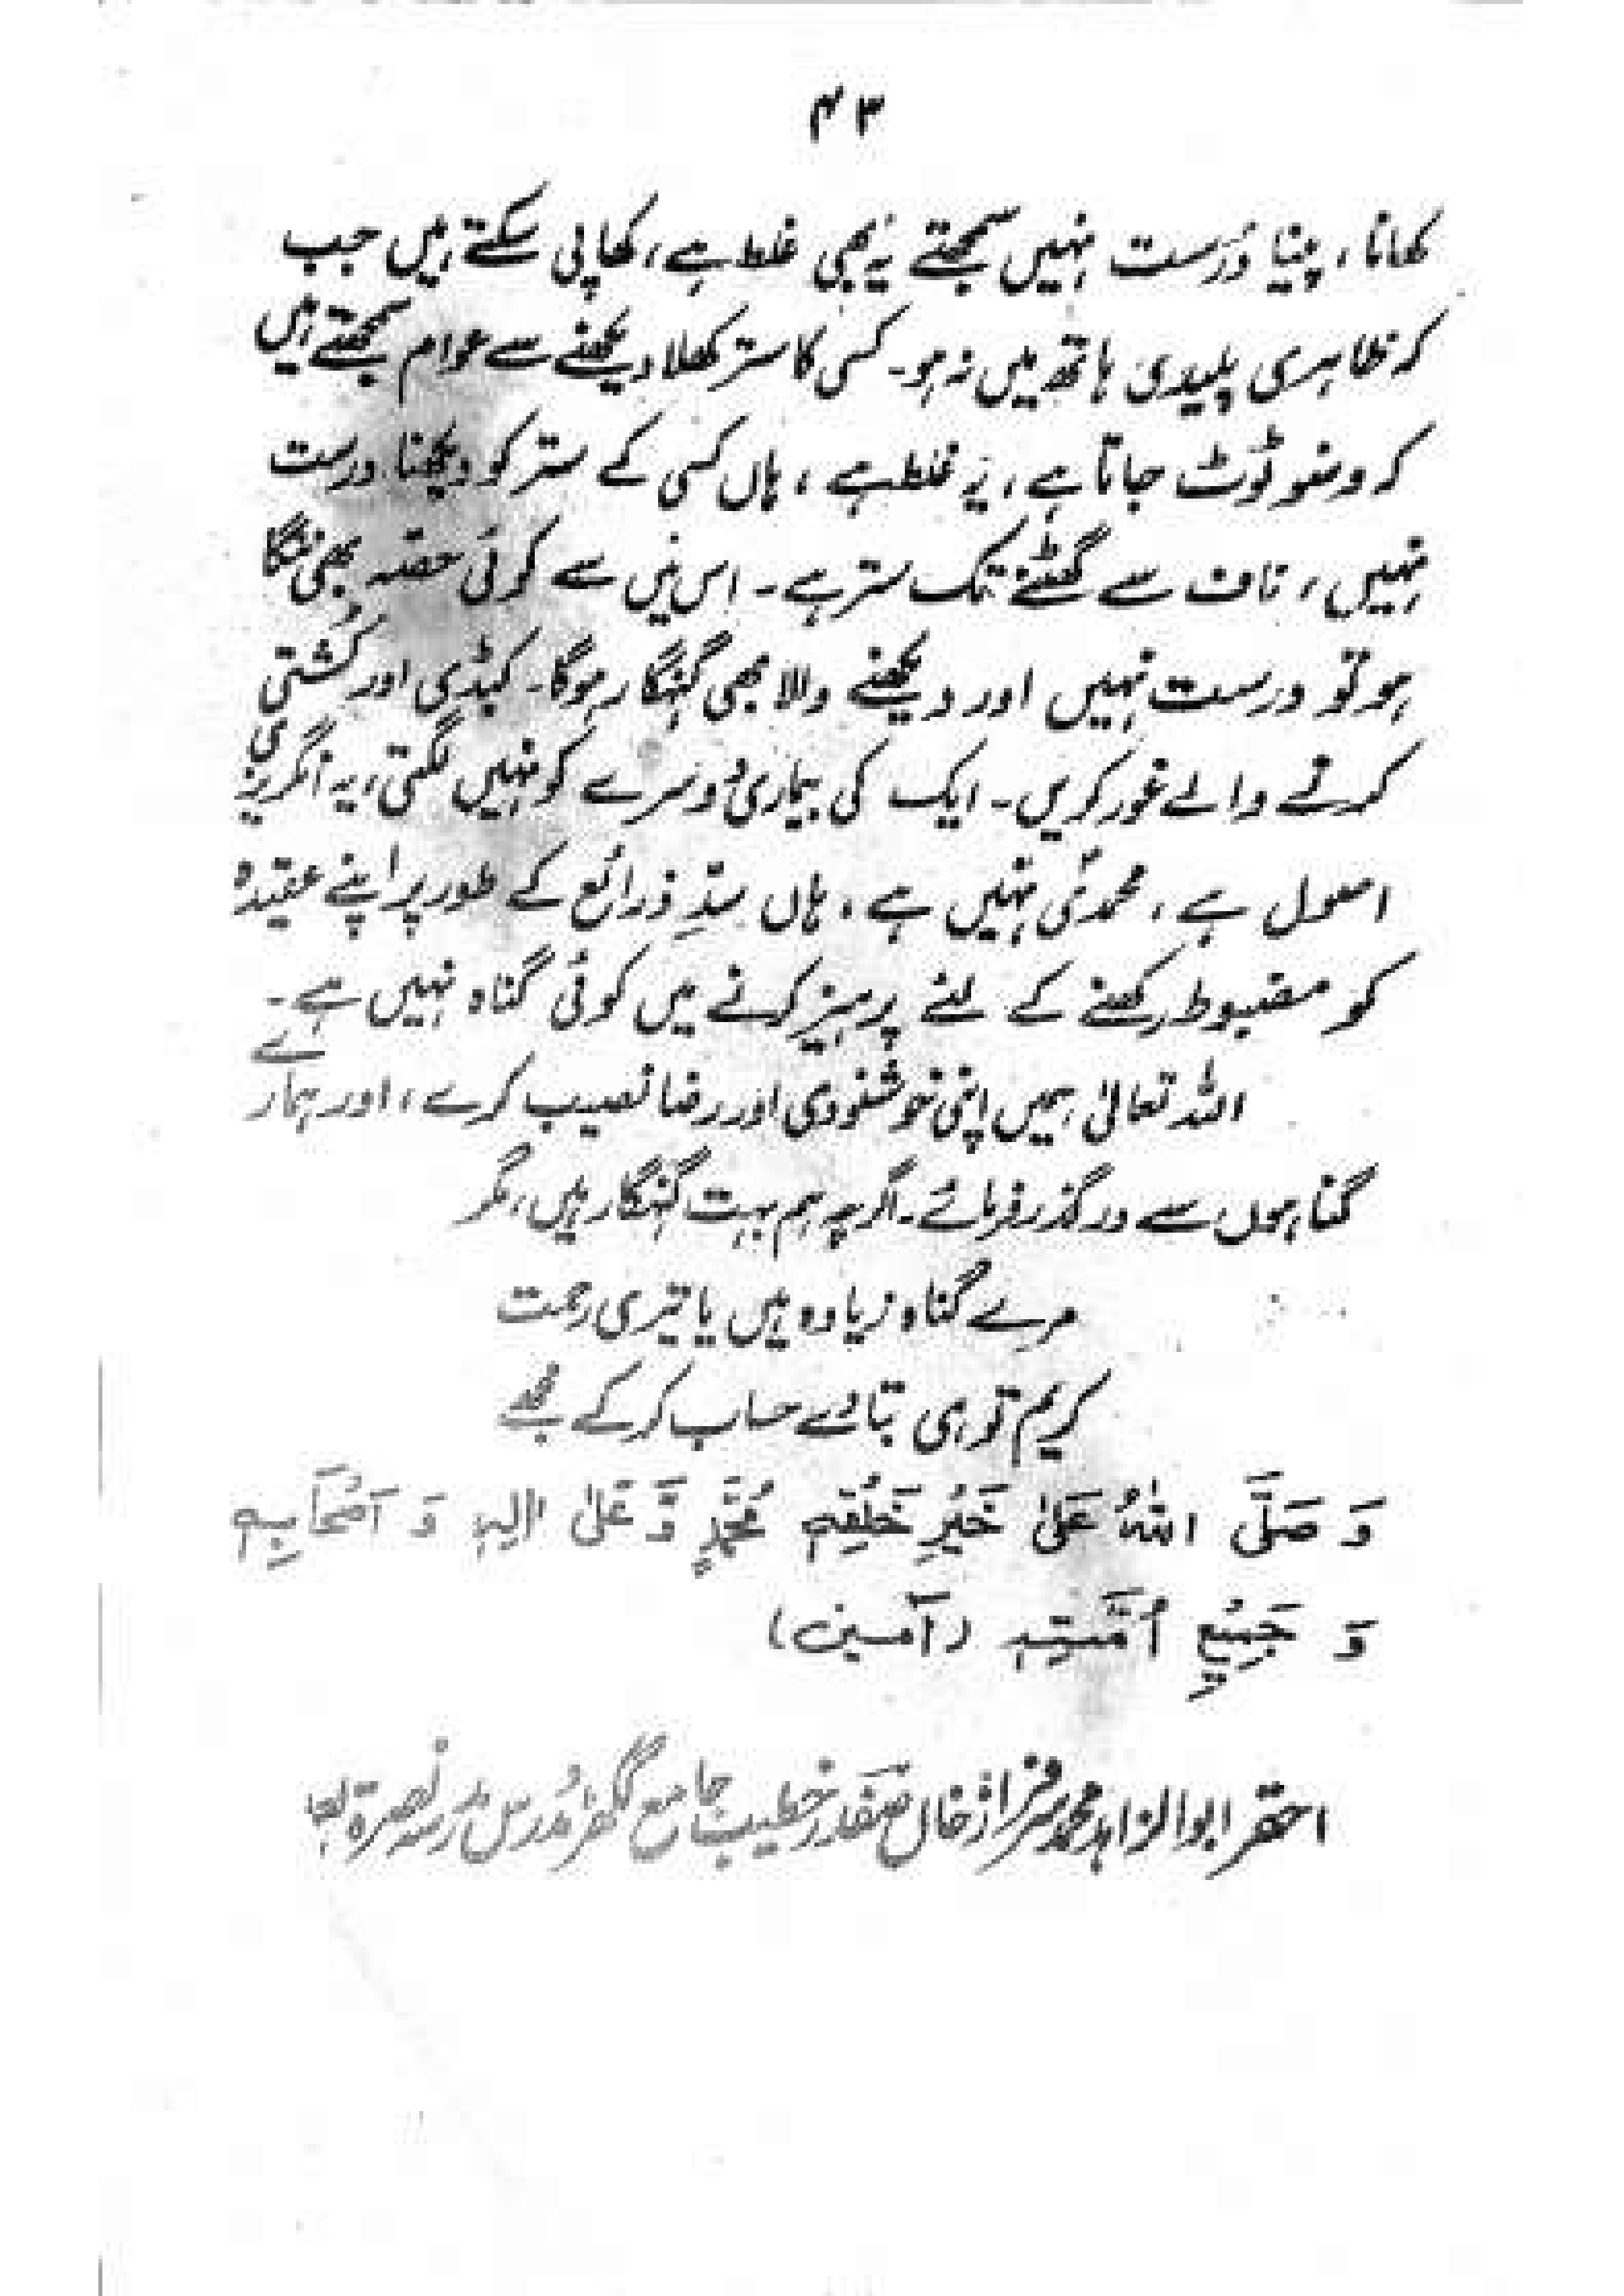 ۴۳
کھانا، پینا دُرست نہیں سمجھتے یہ بھی غلط ہے، کھا پی سکتے ہیں جب
کہ ظاہری پلیدی ہاتھ میں نہ ہو۔ کسی کا ستر کھلا دیکھنے سے عوام سمجھتے ہیں
کہ وضو ٹوٹ جاتا ہے، یہ غلط ہے، ہاں کسی کے ستر کو دیکھنا درست
نہیں، ناف سے گھٹنے تک ستر ہے۔ اس میں سے کوئی حصّہ بھی ننگا
ہو تو درست نہیں اور دیکھنے والا بھی گنہگار ہوگا۔ کبڈی اور کُشتی
کرنے والے غور کریں۔ ایک کی بیماری دُوسرے کو نہیں لگتی، یہ انگریزی
اصول ہے، محمدیؐ نہیں ہے، ہاں سدِّ ذرائع کے طور پر اپنے عقیدہ
کو مضبوط رکھنے کے لئے پرہیز کرنے میں کوئی گناہ نہیں ہے۔
اللہ تعالیٰ ہمیں اپنی خوشنودی اور رضا نصیب کرے، اور ہمارے
گناہوں سے درگذر فرمائے۔ اگرچہ ہم بہت گنہگار ہیں، مگر
مرے گناہ زیادہ ہیں یا تیری رحمت
کریم تو ہی بتا دے حساب کرکے مجھے
وَ صَلَّی اللہُ عَلیٰ خَیْرِ خَلْقِہٖ مُحَمَّدٍ وَّ عَلیٰ اٰلِہٖ وَ اَصْحَابِہٖ
وَ جَمِیْعِ اُمَّتِہٖ (آمین)
احقر ابوالزاہد محمد سرفراز خاں صفدر خطیب جامع گکھڑ مُدرس مدرسہ نصرۃ